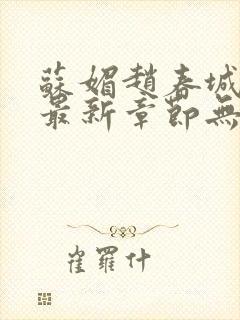 蘇媚趙春城
最新章節無
崔羅什